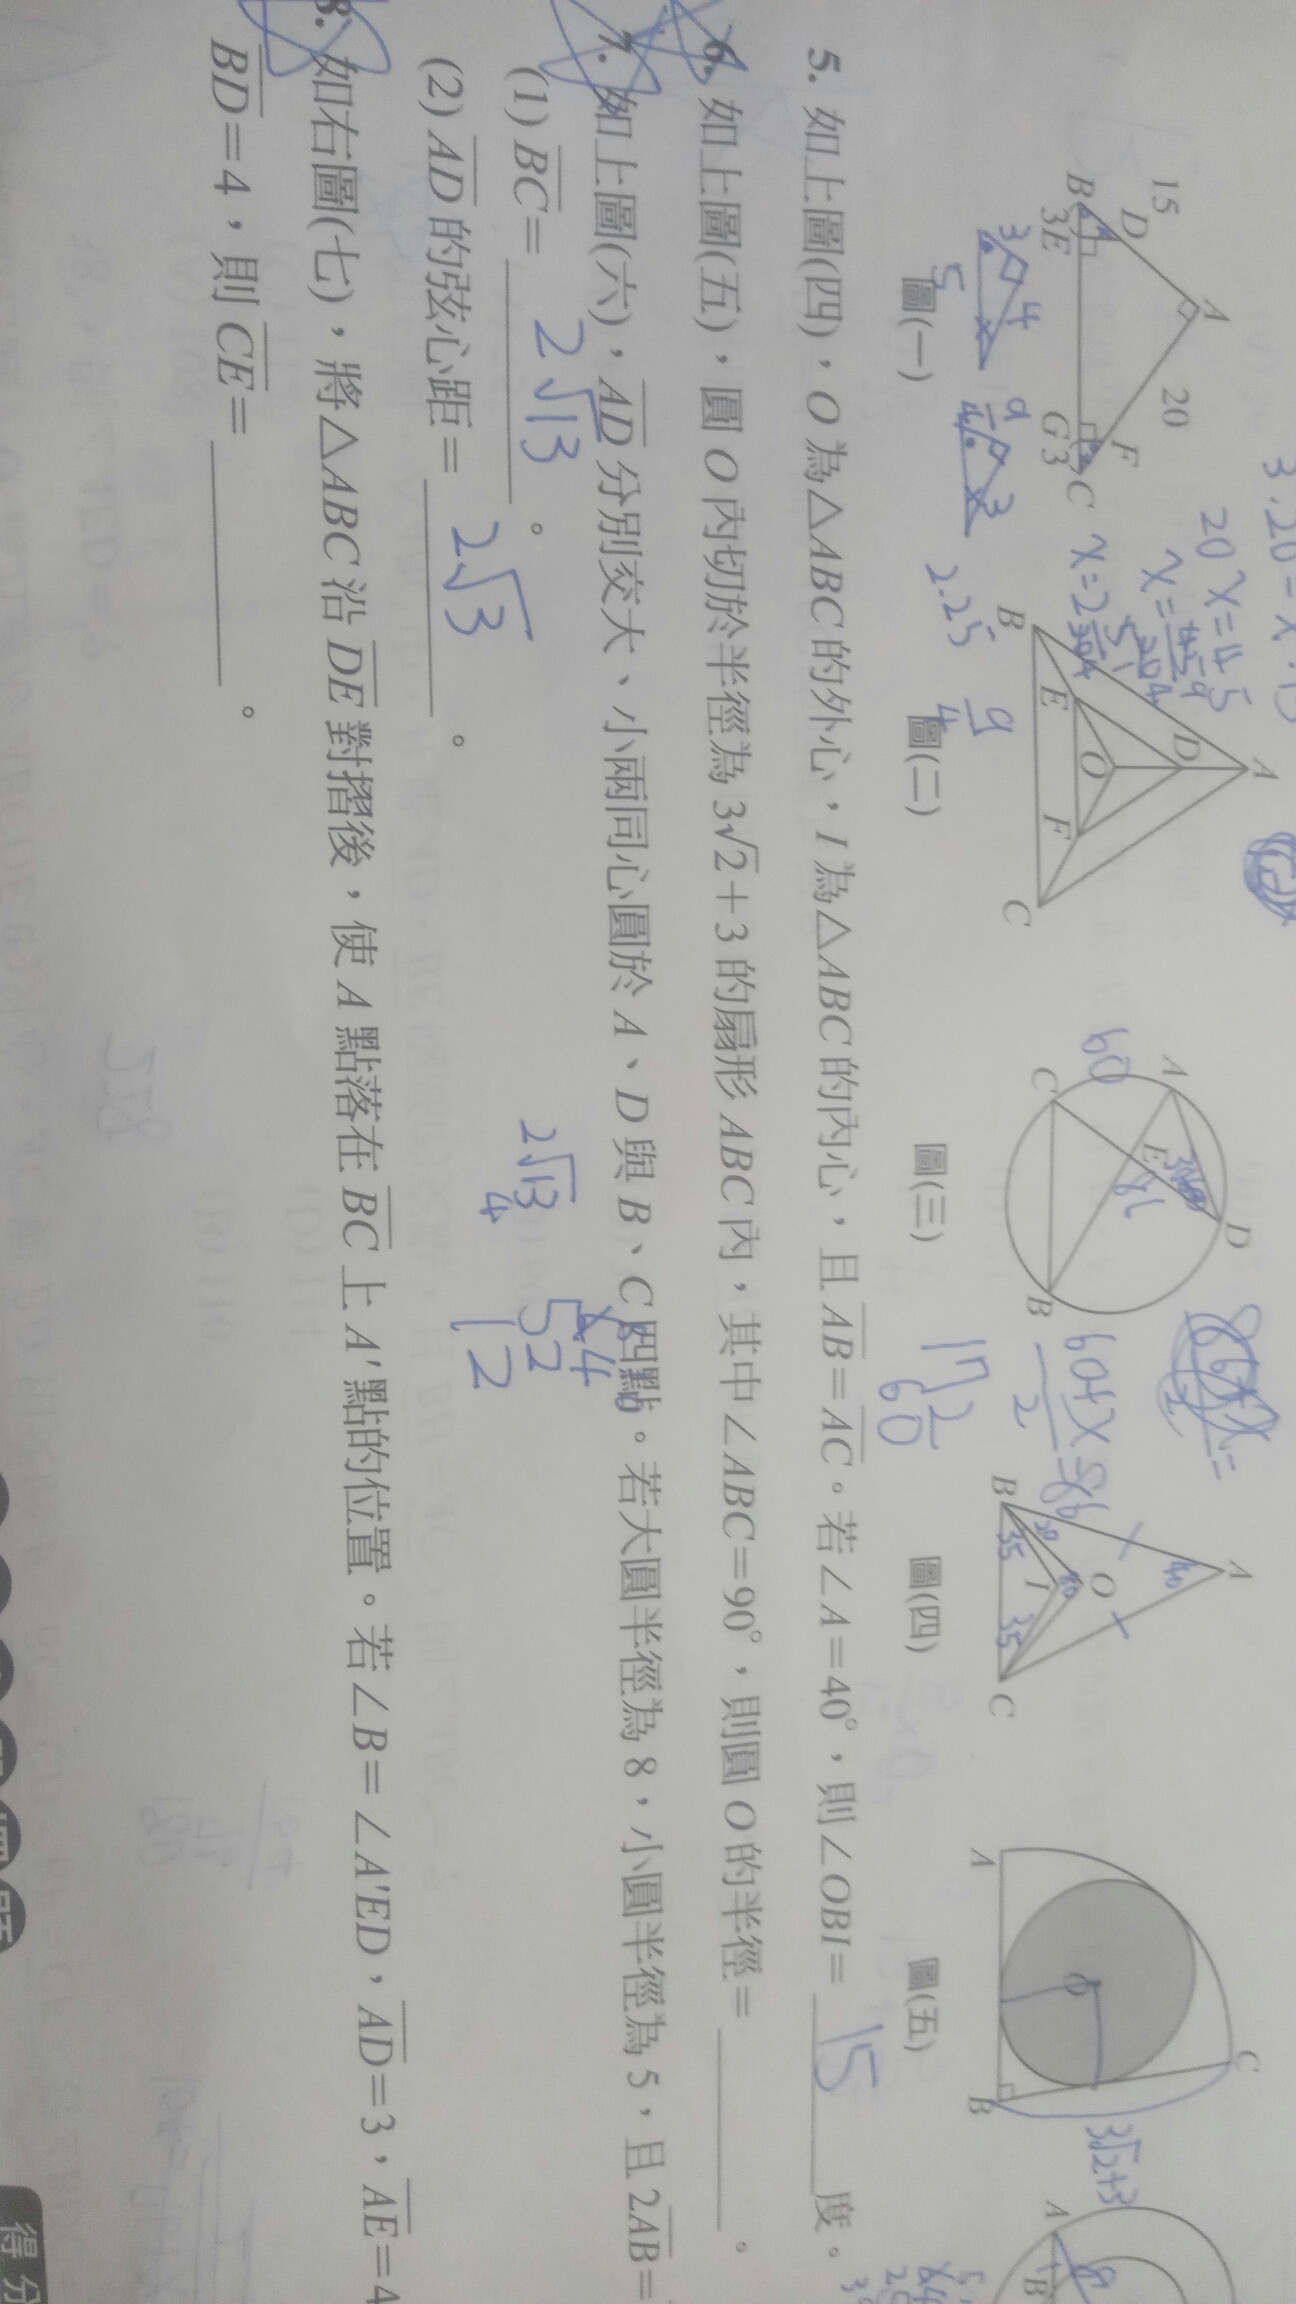 A
20
15
D
F
B
3
E
G
3
C
圖(一)
3
4
5
9
3
2.25
20x=45
A
D
O
B
E
F
C
圖(二)
A
D
E
C
B
60
86
圖(三)
60+x
2
=86
172
60
A
40
O
80
I
B
35
35
C
圖(四)
C
O
A
B
3√2+3
圖(五)
A
B
8
5. 如上圖(四)，O 為△ABC 的外心，I 為△ABC 的內心，且 AB=AC。若∠A=40°，則∠OBI= 15 度。
6. 如上圖(五)，圓 O 內切於半徑為 3√2+3 的扇形 ABC 內，其中∠ABC=90°，則圓 O 的半徑=＿＿＿。
7. 如上圖(六)，AD 分別交大、小兩同心圓於 A、D 與 B、C 四點。若大圓半徑為 8，小圓半徑為 5，且 2AB=
(1) BC= 2√13 。
2√13
4
52
12
(2) AD 的弦心距= 2√3 。
8. 如右圖(七)，將△ABC 沿 DE 對摺後，使 A 點落在 BC 上 A′點的位置。若∠B=∠A′ED，AD=3，AE=4
BD=4，則 CE=＿＿＿。
得分